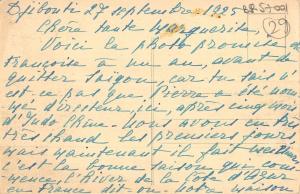 Djibouti 27 septembre 1925
Chère tante Marguerite,
Voici la photo promise de
Françoise à un an, avant de
quitter Saigon car tu sais
est ce pas que Pierre a été nom
mé directeur, ici, après cinq mois
d'Indo Chine. Nous avons eu
très chaud les premiers jours
mais maintenant il fait meilleur
c'est la bonne saison qui com
mence, l'Hiver de la Côte d'Azur
en France, dit on. Notre maison
29